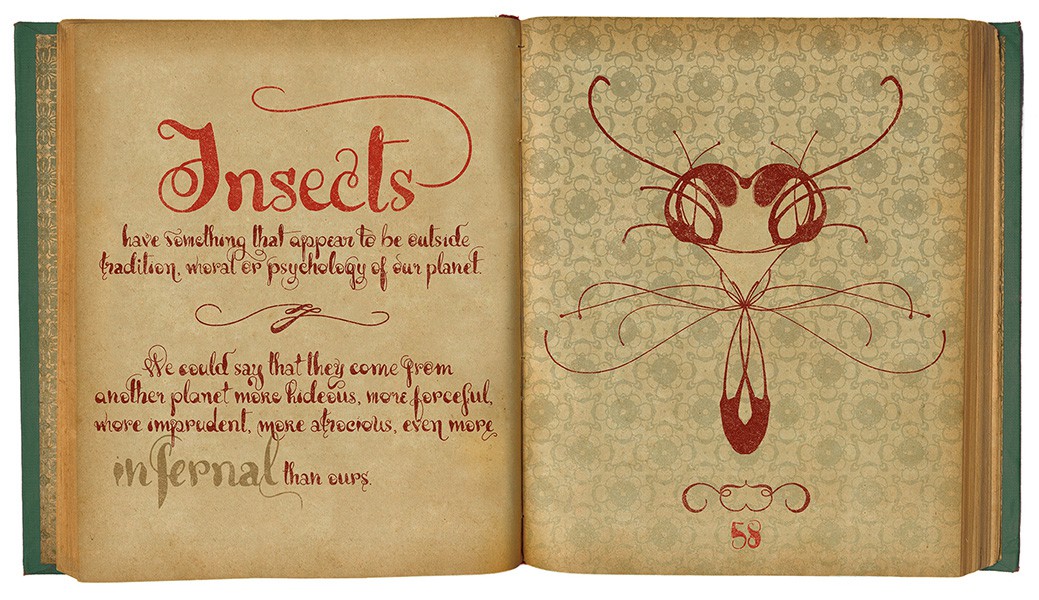 Insects
have something that appear to be outside
tradition, moral or psychology of our planet.
We could say that they come from
another planet more hideous, more forceful,
more imprudent, more atrocious, even more
infernal than ours.
58